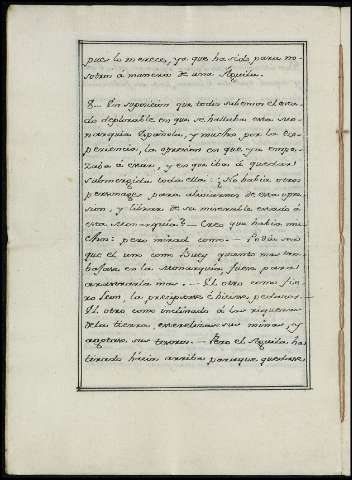 pues lo merece, ya que ha sido para no-
sotros á manera de una Aguila.
X... En suposicion que todos sabemos el esta-
do deplorable en que se hallaba esta Mo-
narquia Española, y mucho por la ex-
periencia, la opresion en que ya empe-
zaba á estar, y en que iba á quedar
submergida toda ella: ¿No habia otros
personages para aliviarnos de esta opre-
sion, y librar de su miserable estado á
esta Monarquia? - Creo que habia mu-
chos: pero mirad como. - Podia ser
que el uno como Buey quanto mas tra-
bajase en la Monarquia, fuera para
arruinarla mas. - El otro como fie-
ro Leon, la precipitase é hiciese pedazos. -
El otro como inclinado á las riquezas
de la tierra, sus minas, y
agotase sus tesoros. - Pero el Aguila ha
tirado hácia arriba para que quedase